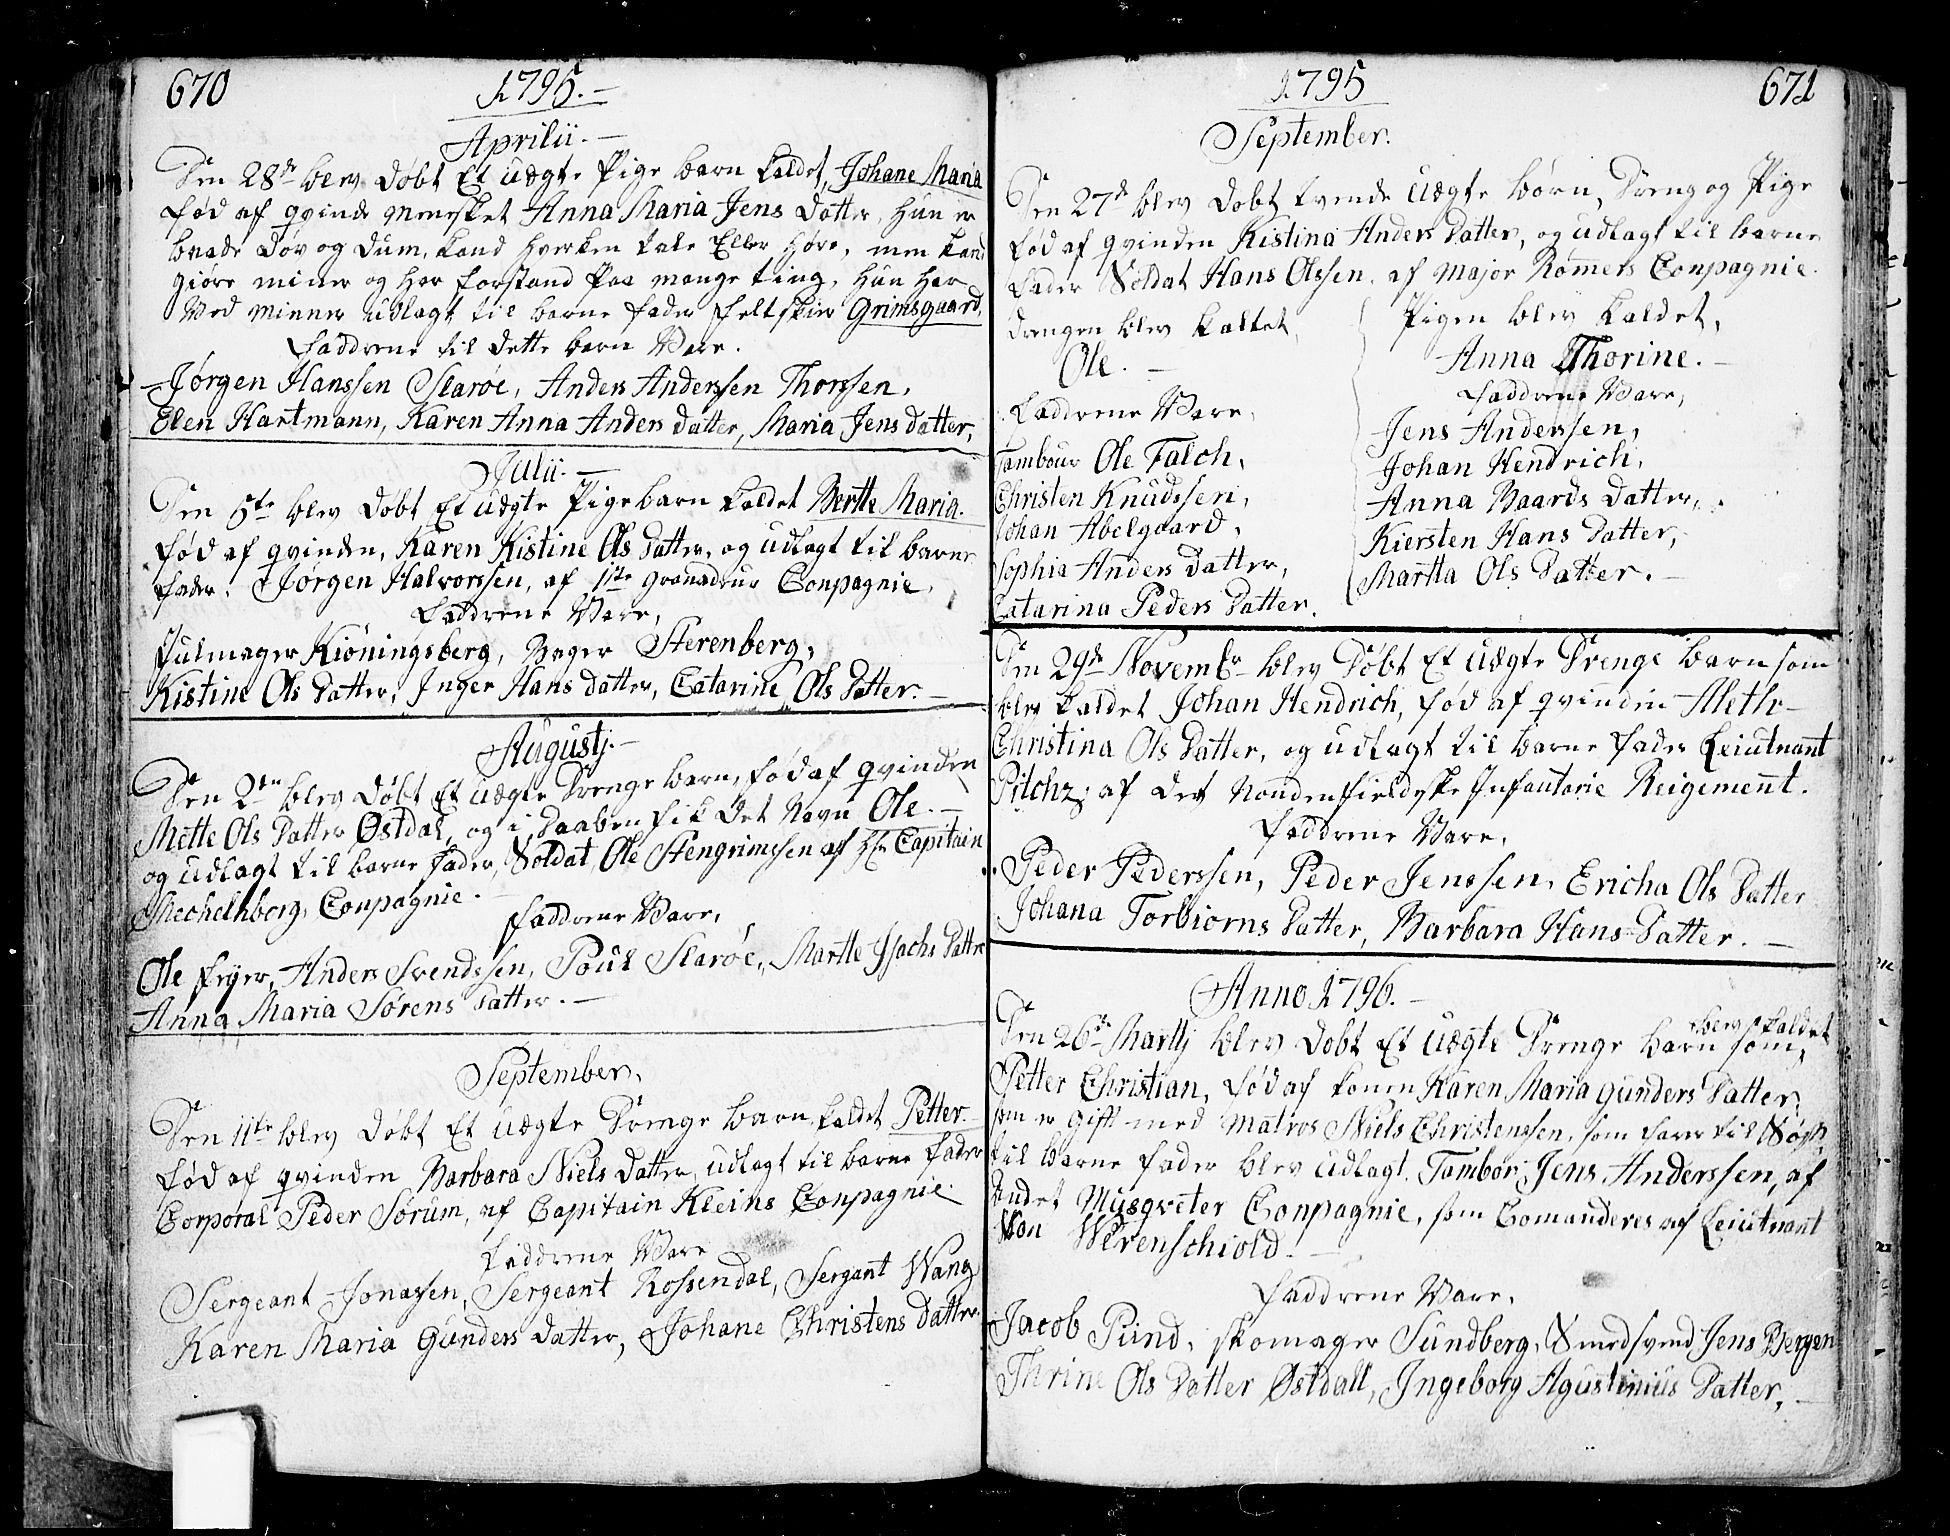 670
1795.
Aprilii.
Den 28de blev døbt Et Uægte Pige barn kaldet, Johane Maria
fød af qvinde Mennesket Anna Maria Jens Datter, hun er
baade døv og dum, kand hverken tale Eller høre, men kand
giøre miner og har forstand paa mange ting, hun har
ved minner udlagt til barne fader feltskier Grimsgaard,
fadderne til dette barn Vare.
Jørgen Hanssen Slarøe, Anders Anderssen Thorssen,
Elen Hartmann, Karen Anna Anders Datter, Maria Jens Datter,
Julii.
Den 5te blev døbt Et uægte Pige barn kaldet Berthe Maria.
fød af qvinden, Karen Kistine Ols Datter, og udlagt til barne
fader. Jørgen Halvorssen, af 1ste granadeur Conpagnie,
fadderne Vare,
Kiøningsberg, Bager Sterenberg,
Kistine Ols Datter, Inger Hans Datter, Catarine Ols Datter.
Augustj.
Den 2den blev døbt Et uægte Drenge barn, fød af qvinden
Mette Ols Datter Østdal, og i daaben fik det Navn Ole.
og udlagt til barne fader, Soldat Ole Stengrimssen af Hr Capitain
Mechelnborg, Conpagnie.
fadderne Vare,
Ole Feyer, Anders Svendssen, Poul Slarøe, Marthe Isachs Datter
Anna Maria Sørens Datter.
September,
Den 11te blev døbt Et uægte Drenge barn kaldet Petter
fød af qvinden Barbara Niels Datter, udlagt til barne fader
Corporal Peder Sørum, af Capitain Kleins Conpagnie.
fadderne Vare
Sergeant Jonassen, Sergeant Rossendal, Sergant Wang
Karen Maria Gunders Datter, Johane Christens Datter.
1795
671
September.
Den 27de blev døbt tvende Uægte børn, Dreng og Pige
fød af qvinden Kistina Anders Datter, og udlagt til barne
fader Soldat Hans Olssen, af Major Rømers Conpagnie.
drengen blev kaldet,
Ole.
fadderne Vare,
Tambour Ole Falch,
Christen Knudssen,
Johan Abelgaard,
Sophia Anders Datter,
Catarina Peders Datter.
Pigen blev kaldet,
Anna Thorine.
fadderne Vare,
Jens Anderssen,
Johan Hendrich,
Anna Baards Datter,
Kiersten Hans Datter,
Martha Ols Datter.
Den 29de Novembr blev Døbt Et Uægte Drenge barn som
blev kaldet Johan Hendrich, fød af qvinden Alethe
Christina Ols Datter, og udlagt til barne fader Leiutnant
Piltchz, af det Nondenfieldeske Infanterie Reigement.
fadderne Vare,
Peder Pederssen, Peder Jenssen, Ericha Ols Datter
Johana Torbiørns Datter, Barbara Hans Datter.
Anno 1796.
Den 26de Martij blev døbt Et Uægte Drenge barn som, blev kaldet
Petter Christian, fød af konen Karen Maria Gunders Datter,
som er gift med Matros Niels Christenssen, som farer til Søes,
til barne fader blev udlagt, Tambor, Jens Anderssen, af
Andet Musqveter Conpagnie, som Comanderes af Leiutnant
Von Werenschiold.
fadderne Vare,
Jacob Pünd, skomager Sundberg, Smedsvend Jens Bergen
Thrine Ols Datter Østdall, Ingeborg Agustinius Datter,